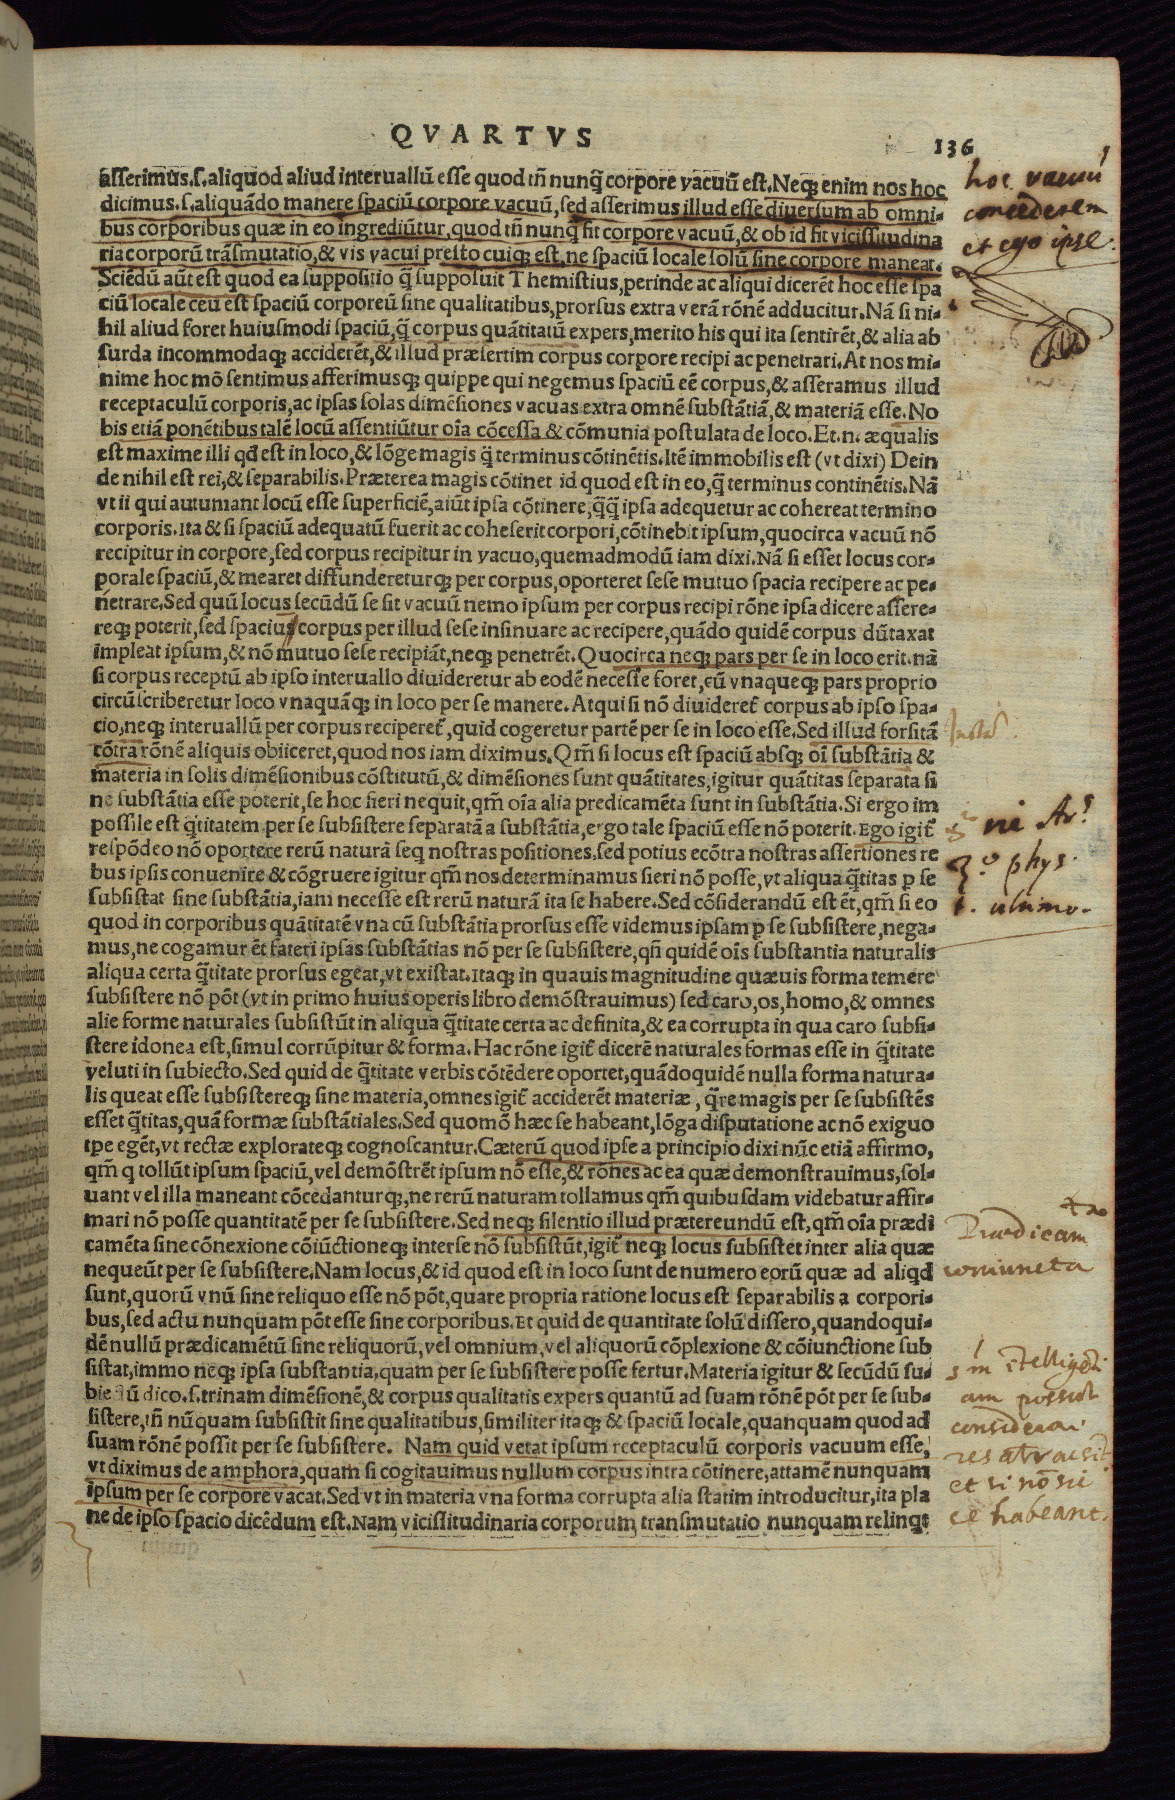 QVARTVS
136
asserimus.s.aliquod aliud interuallũ esse quod tñ nunq̃ corpore vacuũ est.Neq; enim nos hoc
dicimus.s.aliquãdo manere spaciũ corpore vacuũ, sed asserimus illud esse diuersum ab omni-
bus corporibus quæ in eo ingrediũtur,quod tñ nunq̃ fit corpore vacuũ,& ob id fit vicissitudina
ria corporũ trãsmutatio,& vis vacui presto cuiq; est,ne spaciũ locale solũ sine corpore maneat.
Sciẽdũ aũt est quod ea suppositio q̃ supposuit Themistius,perinde ac aliqui dicerẽt hoc esse spa
ciũ locale ceu est spaciũ corporeũ sine qualitatibus,prorsus extra verã rõnẽ adducitur.Nã si ni-
hil aliud foret huiusmodi spaciũ,q̃ corpus quãtitatũ expers,merito his qui ita sentirẽt,& alia ab
surda incommodaq; acciderẽt,& illud præsertim corpus corpore recipi ac penetrari.At nos mi-
nime hoc mõ sentimus afferimusq; quippe qui negemus spaciũ eẽ corpus,& asseramus illud
receptaculũ corporis,ac ipsas solas dimẽsiones vacuas extra omnẽ substãtiã,& materiã esse.No
bis etiã ponẽtibus talẽ locũ assentiũtur oĩa cõcessa & cõmunia postulata de loco.Et.n.æqualis
est maxime illi qđ est in loco,& lõge magis q̃ terminus cõtinẽtis.Itẽ immobilis est (vt dixi) Dein
de nihil est rei,& separabilis.Præterea magis cõtinet id quod est in eo,q̃ terminus continẽtis.Nã
vt ii qui autumant locũ esse superficiẽ,aiũt ipsa cõtinere,q̃q̃ ipsa adequetur ac cohereat termino
corporis.ita & si spaciũ adequatũ fuerit ac coheserit corpori,cõtinebit ipsum,quocirca vacuũ nõ
recipitur in corpore,sed corpus recipitur in vacuo,quemadmodũ iam dixi.Nã si esset locus cor-
porale spaciũ,& mearet diffundereturq; per corpus,oporteret sese mutuo spacia recipere ac pe-
netrare.Sed quũ locus secũdũ se sit vacuũ nemo ipsum per corpus recipi rõne ipsa dicere assere-
req; poterit,sed spacius corpus per illud sese insinuare ac recipere,quãdo quidẽ corpus dũtaxat
impleat ipsum,& nõ mutuo sese recipiãt,neq; penetrẽt.Quocirca neq; pars per se in loco erit.nã
si corpus receptũ ab ipso interuallo diuideretur ab eodẽ necesse foret,cũ vnaqueq; pars proprio
circũscriberetur loco vnaquãq; in loco per se manere.Atqui si nõ diuideret̃ corpus ab ipso spa-
cio,neq; interuallũ per corpus reciperet̃,quid cogeretur partẽ per se in loco esse.Sed illud forsitã
cõtra rõnẽ aliquis obiiceret,quod nos iam diximus.Qm̃ si locus est spaciũ absq; oĩ substãtia &
materia in solis dimẽsionibus cõstitutũ,& dimẽsiones sunt quãtitates,igitur quãtitas separata si
ne substãtia esse poterit,se hoc fieri nequit,qm̃ oĩa alia predicamẽta sunt in substãtia.Si ergo im
possile est q̃titatem per se subsistere separatã a substãtia,ergo tale spaciũ esse nõ poterit.Ego igit̃
respõdeo nõ oportere rerũ naturã seq̣ nostras positiones.sed potius ecõtra nostras assertiones re
bus ipsis conuenire & cõgruere igitur qm̃ nos determinamus fieri nõ posse,vt aliqua q̃titas p se
subsistat sine substãtia,iam necesse est rerũ naturã ita se habere.Sed cõsiderandũ est ẽt,qm̃ si eo
quod in corporibus quãtitatẽ vna cũ substãtia prorsus esse videmus ipsam p se subsistere,nega-
mus,ne cogamur ẽt fateri ipsas substãtias nõ per se subsistere,qñ quidẽ oĩs substantia naturalis
aliqua certa q̃titate prorsus egeat,vt existat.itaq; in quauis magnitudine quæuis forma temere
subsistere nõ põt (vt in primo huius operis libro demõstrauimus) sed caro,os,homo,& omnes
alie forme naturales subsistũt in aliqua q̃titate certa ac definita,& ea corrupta in qua caro subsi-
stere idonea est,simul corrũpitur & forma.Hac rõne igit̃ dicerẽ naturales formas esse in q̃titate
veluti in subiecto.Sed quid de q̃titate verbis cõtẽdere oportet,quãdoquidẽ nulla forma natura-
lis queat esse subsistereq; sine materia,omnes igit̃ acciderẽt materiæ, q̃re magis per se subsistẽs
esset q̃titas,quã formæ substãtiales.Sed quomõ hæc se habeant,lõga disputatione ac nõ exiguo
tpe egẽt,vt rectæ explorateq; cognoscantur.Cæterũ quod ipse a principio dixi nũc etiã affirmo,
qm̃ q tollũt ipsum spaciũ,vel demõstrẽt ipsum nõ esse,& rõnes ac ea quæ demonstrauimus,sol-
uant vel illa maneant cõcedanturq;,ne rerũ naturam tollamus qm̃ quibusdam videbatur affir-
mari nõ posse quantitatẽ per se subsistere.Sed neq; silentio illud prætereundũ est,qm̃ oĩa prædi
camẽta sine cõnexione cõiũctioneq; inter se nõ subsistũt,igit̃ neq; locus subsistet inter alia quæ
nequeũt per se subsistere.Nam locus,& id quod est in loco sunt de numero eorũ quæ ad aliqđ
sunt,quorũ vnũ sine reliquo esse nõ põt,quare propria ratione locus est separabilis a corpori-
bus,sed actu nunquam põt esse sine corporibus.Et quid de quantitate solũ dissero,quandoqui-
dẽ nullũ prædicamẽtũ sine reliquorũ,vel omnium,vel aliquorũ cõplexione & cõiunctione sub
sistat,immo neq; ipsa substantia,quam per se subsistere posse fertur.Materia igitur & secũdũ su-
biectũ dico.s.trinam dimẽsionẽ,& corpus qualitatis expers quantũ ad suam rõnẽ põt per se sub-
sistere,tñ nũquam subsistit sine qualitatibus,similiter itaq; & spaciũ locale,quanquam quod ad
suam rõnẽ possit per se subsistere. Nam quid vetat ipsum receptaculũ corporis vacuum esse,
vt diximus de amphora,quam si cogitauimus nullum corpus intra cõtinere,attamẽ nunquam
ipsum per se corpore vacat.Sed vt in materia vna forma corrupta alia statim introducitur,ita pla
ne de ipso spacio dicẽdum est.Nam vicissitudinaria corporum transmutatio nunquam relinqt
hoc vacuũ
concederem
et ego ipse.
ni Ar.
3.º phys.
t. ultimo.
Prædicam
ta
coniuncta
am possũt
considerari
et si nõ sic
se habeant.